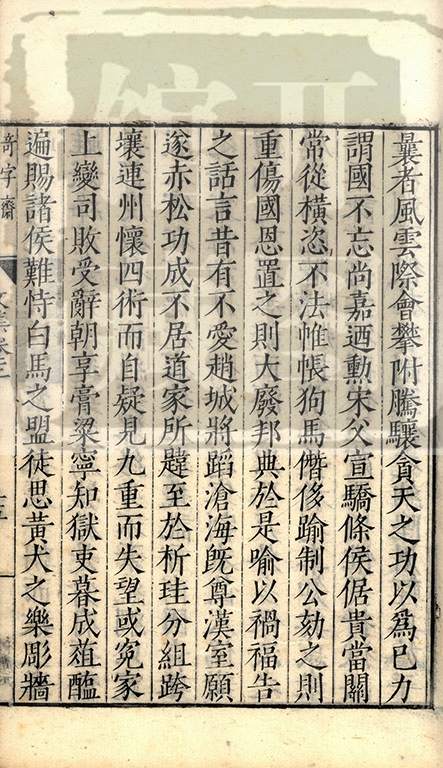 曩者風雲際會攀附騰驤貪天之功以爲已力
謂國不忘尚嘉迺勲宋父宣驕條侯倨貴當關
常從橫恣不法帷帳狗馬僭侈踰制公劾之則
重傷國恩置之則大廢邦典於是喻以禍福告
之話言昔有不愛趙城將蹈滄海旣尊漢室願
遂赤松功成不居道家所韙至於析珪分組跨
壤連州懷四術而自疑見九重而失望或寃家
上變司敗受辭朝享膏粱寧知獄吏暮成葅醢
遍賜諸侯難恃白馬之盟徒思黃犬之樂彫牆
奇字齋
文集卷三